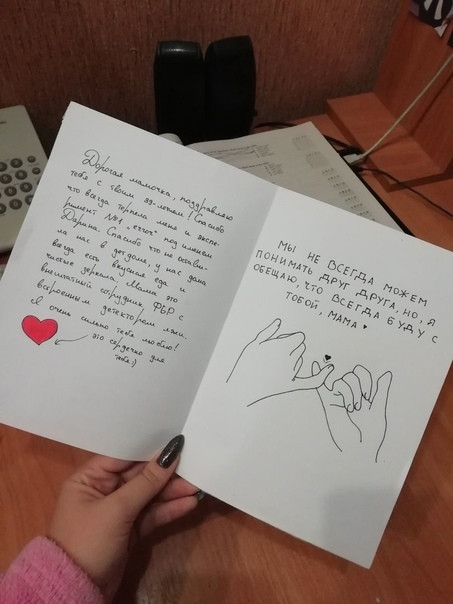 Дорогая мамочка, поздравляю
тебя с твоим 39-летием! Спасибо
что всегда терпела меня и экспе-
римент №1 „error" под именем
Дарина. Спасибо что не остави-
ла нас в дет доме, у нас дома
всегда есть вкусная еда и
чистые зеркала. Мама это
внештатный сотрудник ФБР с
встроенным детектором лжи.
Я очень сильно тебя люблю!
это сердечко для
тебя:)
МЫ НЕ ВСЕГДА МОЖЕМ
ПОНИМАТЬ ДРУГ ДРУГА, НО, Я
ОБЕЩАЮ, ЧТО ВСЕГДА БУДУ С
ТОБОЙ, МАМА